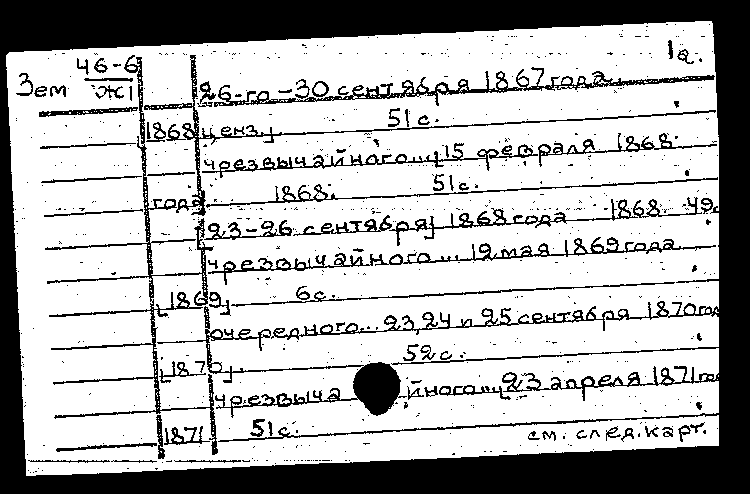 Зем 46-6 1а.
Ж1 26-го-30 сентября 1867 года.
1868 ценз.] 51с.
чрезвычайного... [15 февраля 1868
года 1868. 51с.
[23-26 сентября] 1868 года 1868 49с.
чрезвычайного... 12 мая 1869 года
[1869] 6с.
очередного... 23,24 и 25 сентября 1870 год
[1870]. 52с.
чрезвычайного... [23 апреля 1871 го
1871 51с.
см. след. карт.